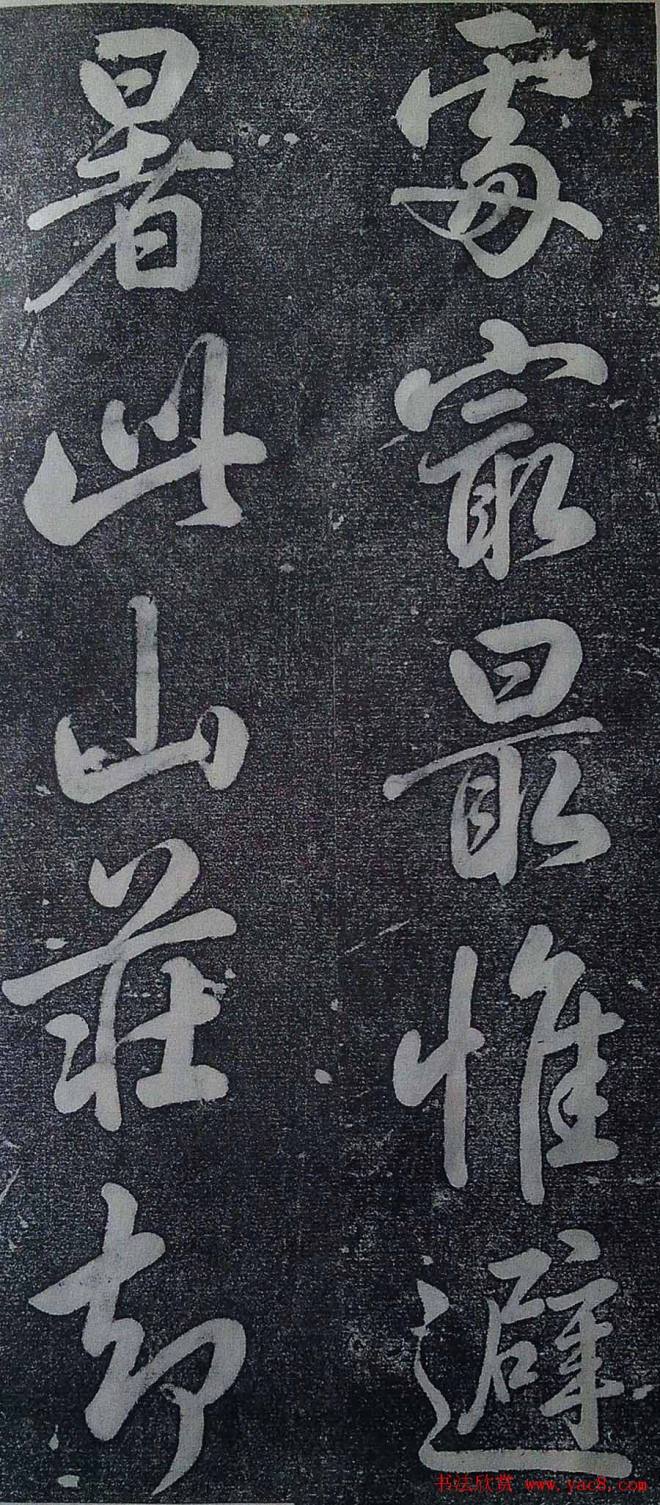 㝡最惟避
暑此山莊却
书法欣赏 www.yac8.com